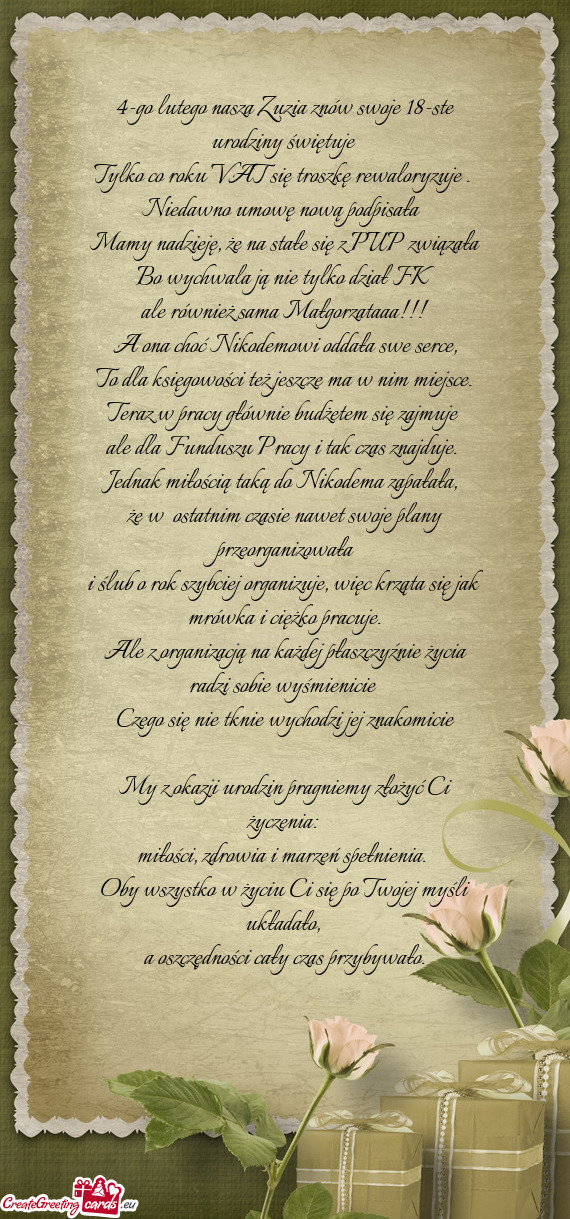 4-go lutego nasza Zuzia znów swoje 18-ste
urodziny świętuje
Tylko co roku VAT się troszkę rewaloryzuje .
Niedawno umowę nową podpisała
Mamy nadzieję, że na stałe się z PUP związała
Bo wychwala ją nie tylko dział FK
ale również sama Małgorzataaa!!!
A ona choć Nikodemowi oddała swe serce,
To dla księgowości też jeszcze ma w nim miejsce.
Teraz w pracy głównie budżetem się zajmuje
ale dla Funduszu Pracy i tak czas znajduje.
Jednak miłością taką do Nikodema zapałała,
że w ostatnim czasie nawet swoje plany
przeorganizowała
i ślub o rok szybciej organizuje, więc krząta się jak
mrówka i ciężko pracuje.
Ale z organizacją na każdej płaszczyźnie życia
radzi sobie wyśmienicie
Czego się nie tknie wychodzi jej znakomicie
My z okazji urodzin pragniemy złożyć Ci
życzenia:
miłości, zdrowia i marzeń spełnienia.
Oby wszystko w życiu Ci się po Twojej myśli
układało,
a oszczędności cały czas przybywało.
CreateGreetingcards.eu